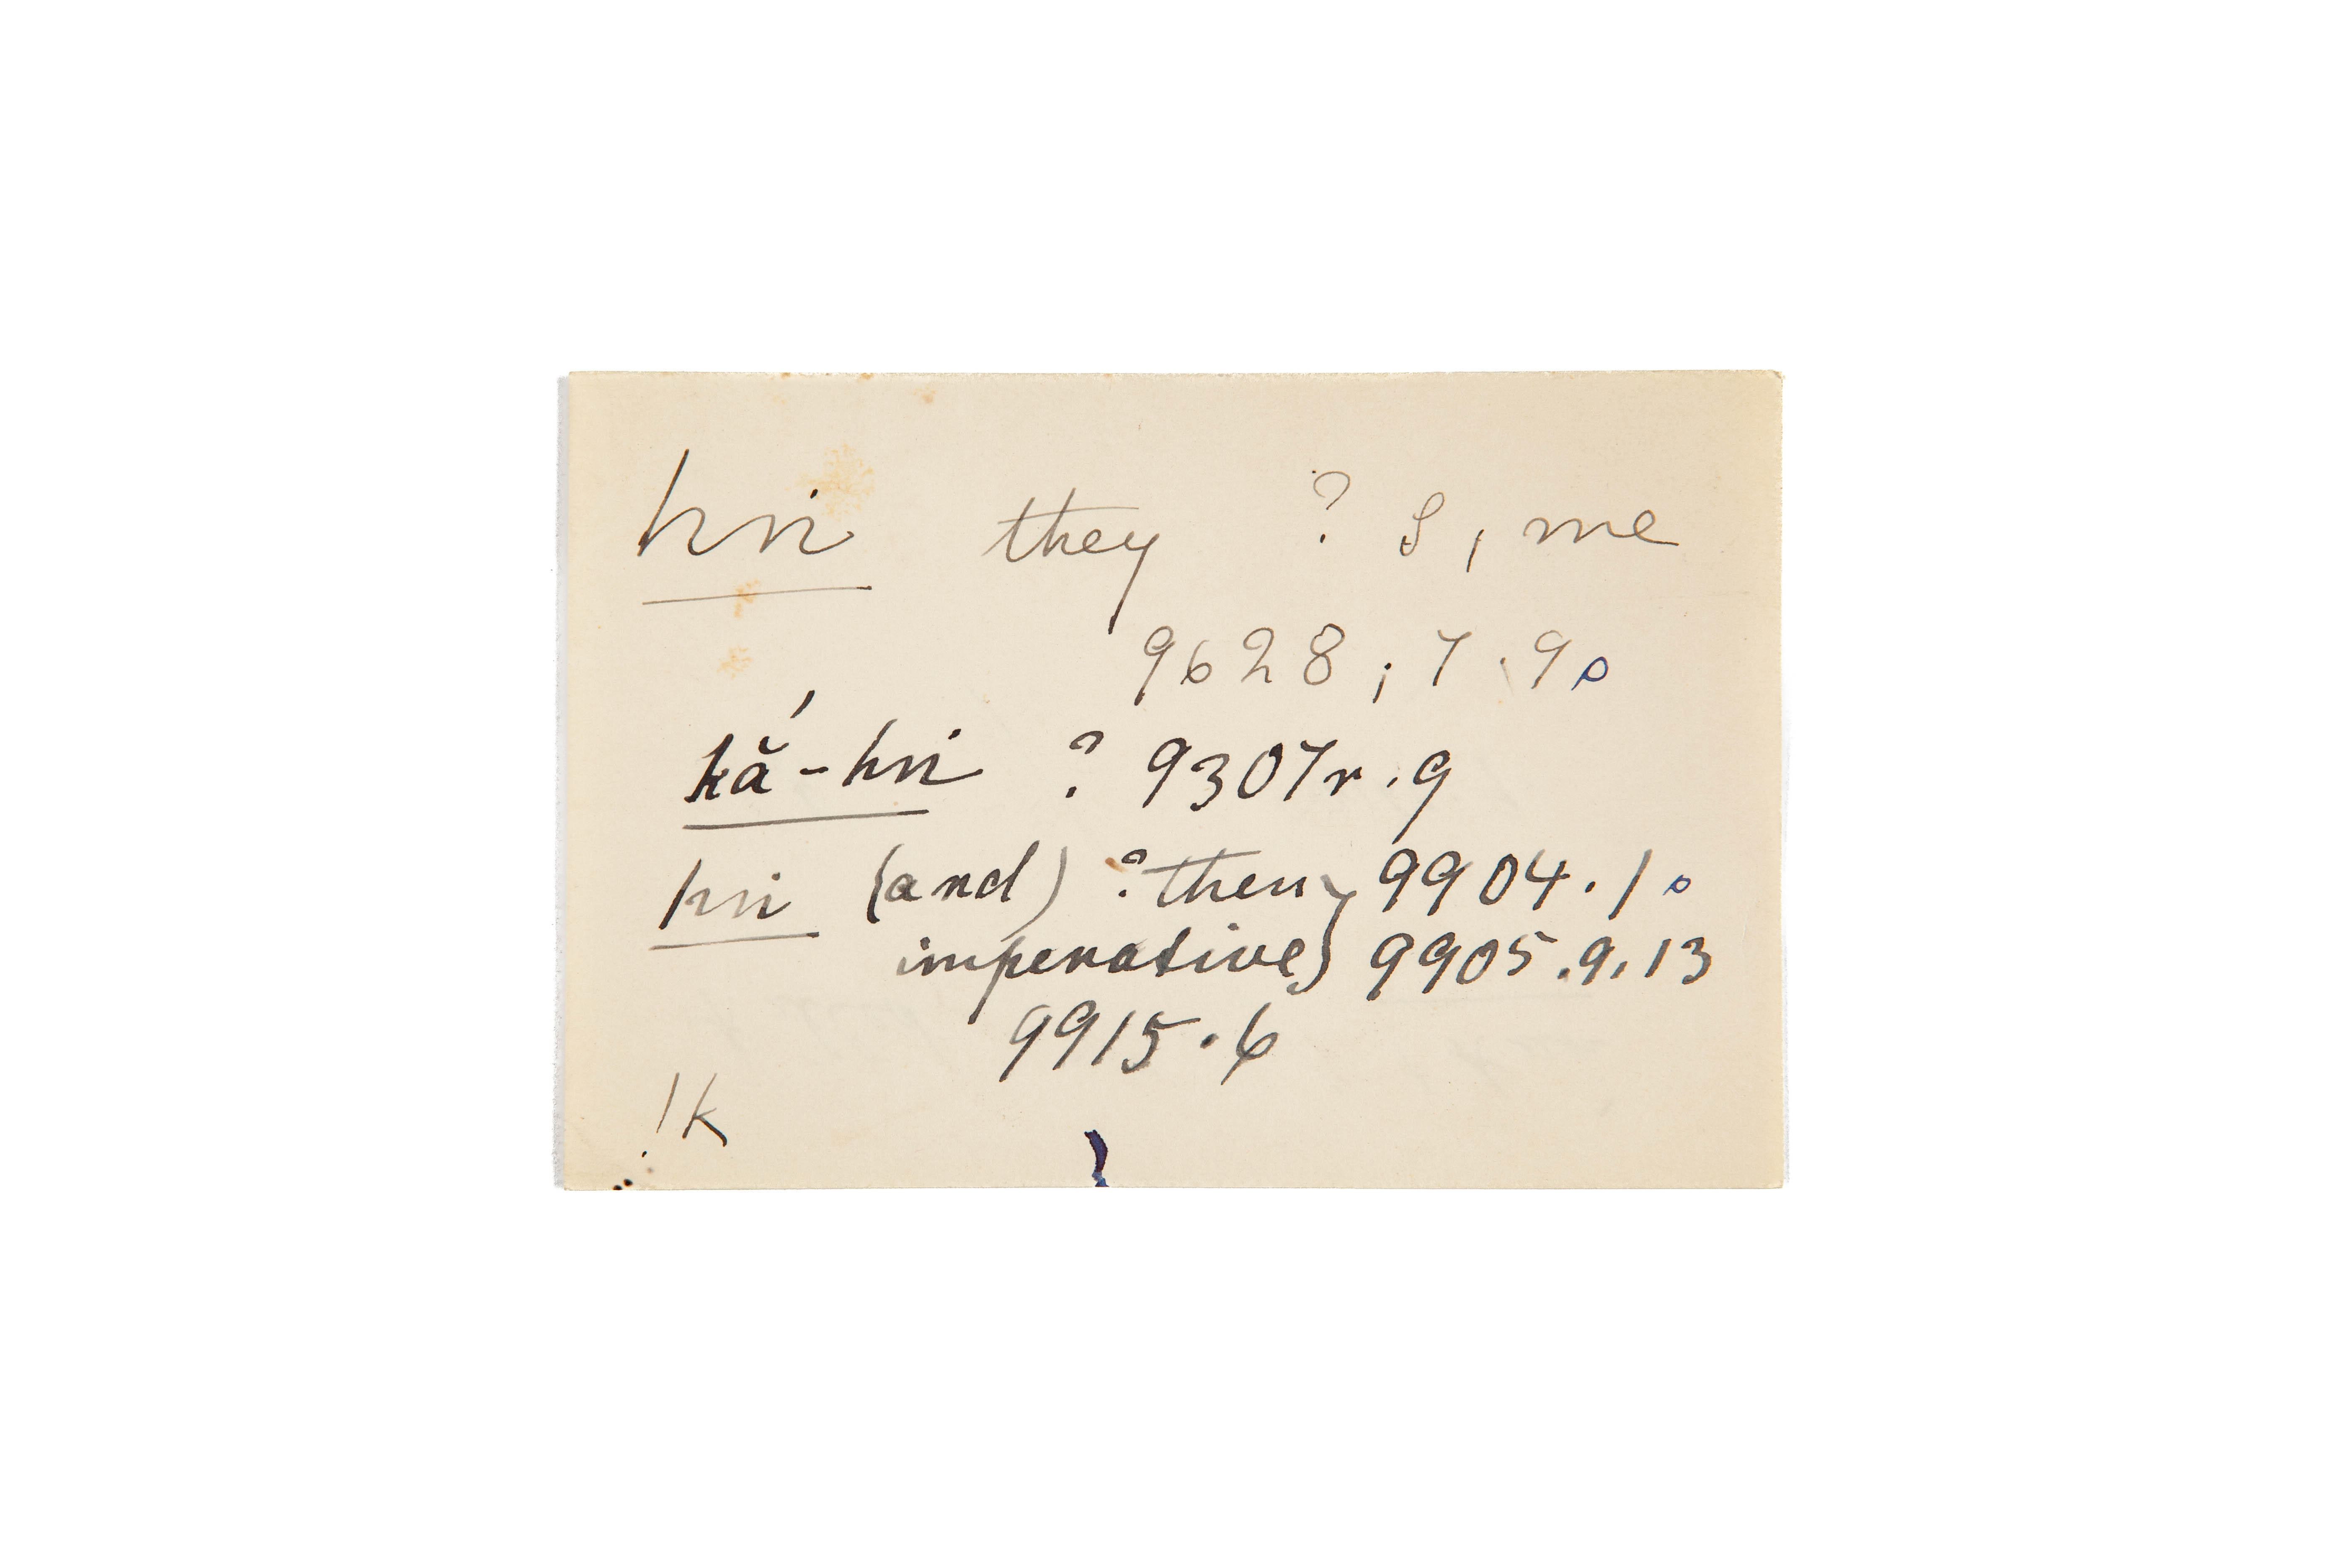 hṅ they ? I, me
9628; 7.90
kắ-hṅ ? 9307r.9
hṅ (and) ? then } 9904.10
imperative } 9905.9.13
9915.6
!k